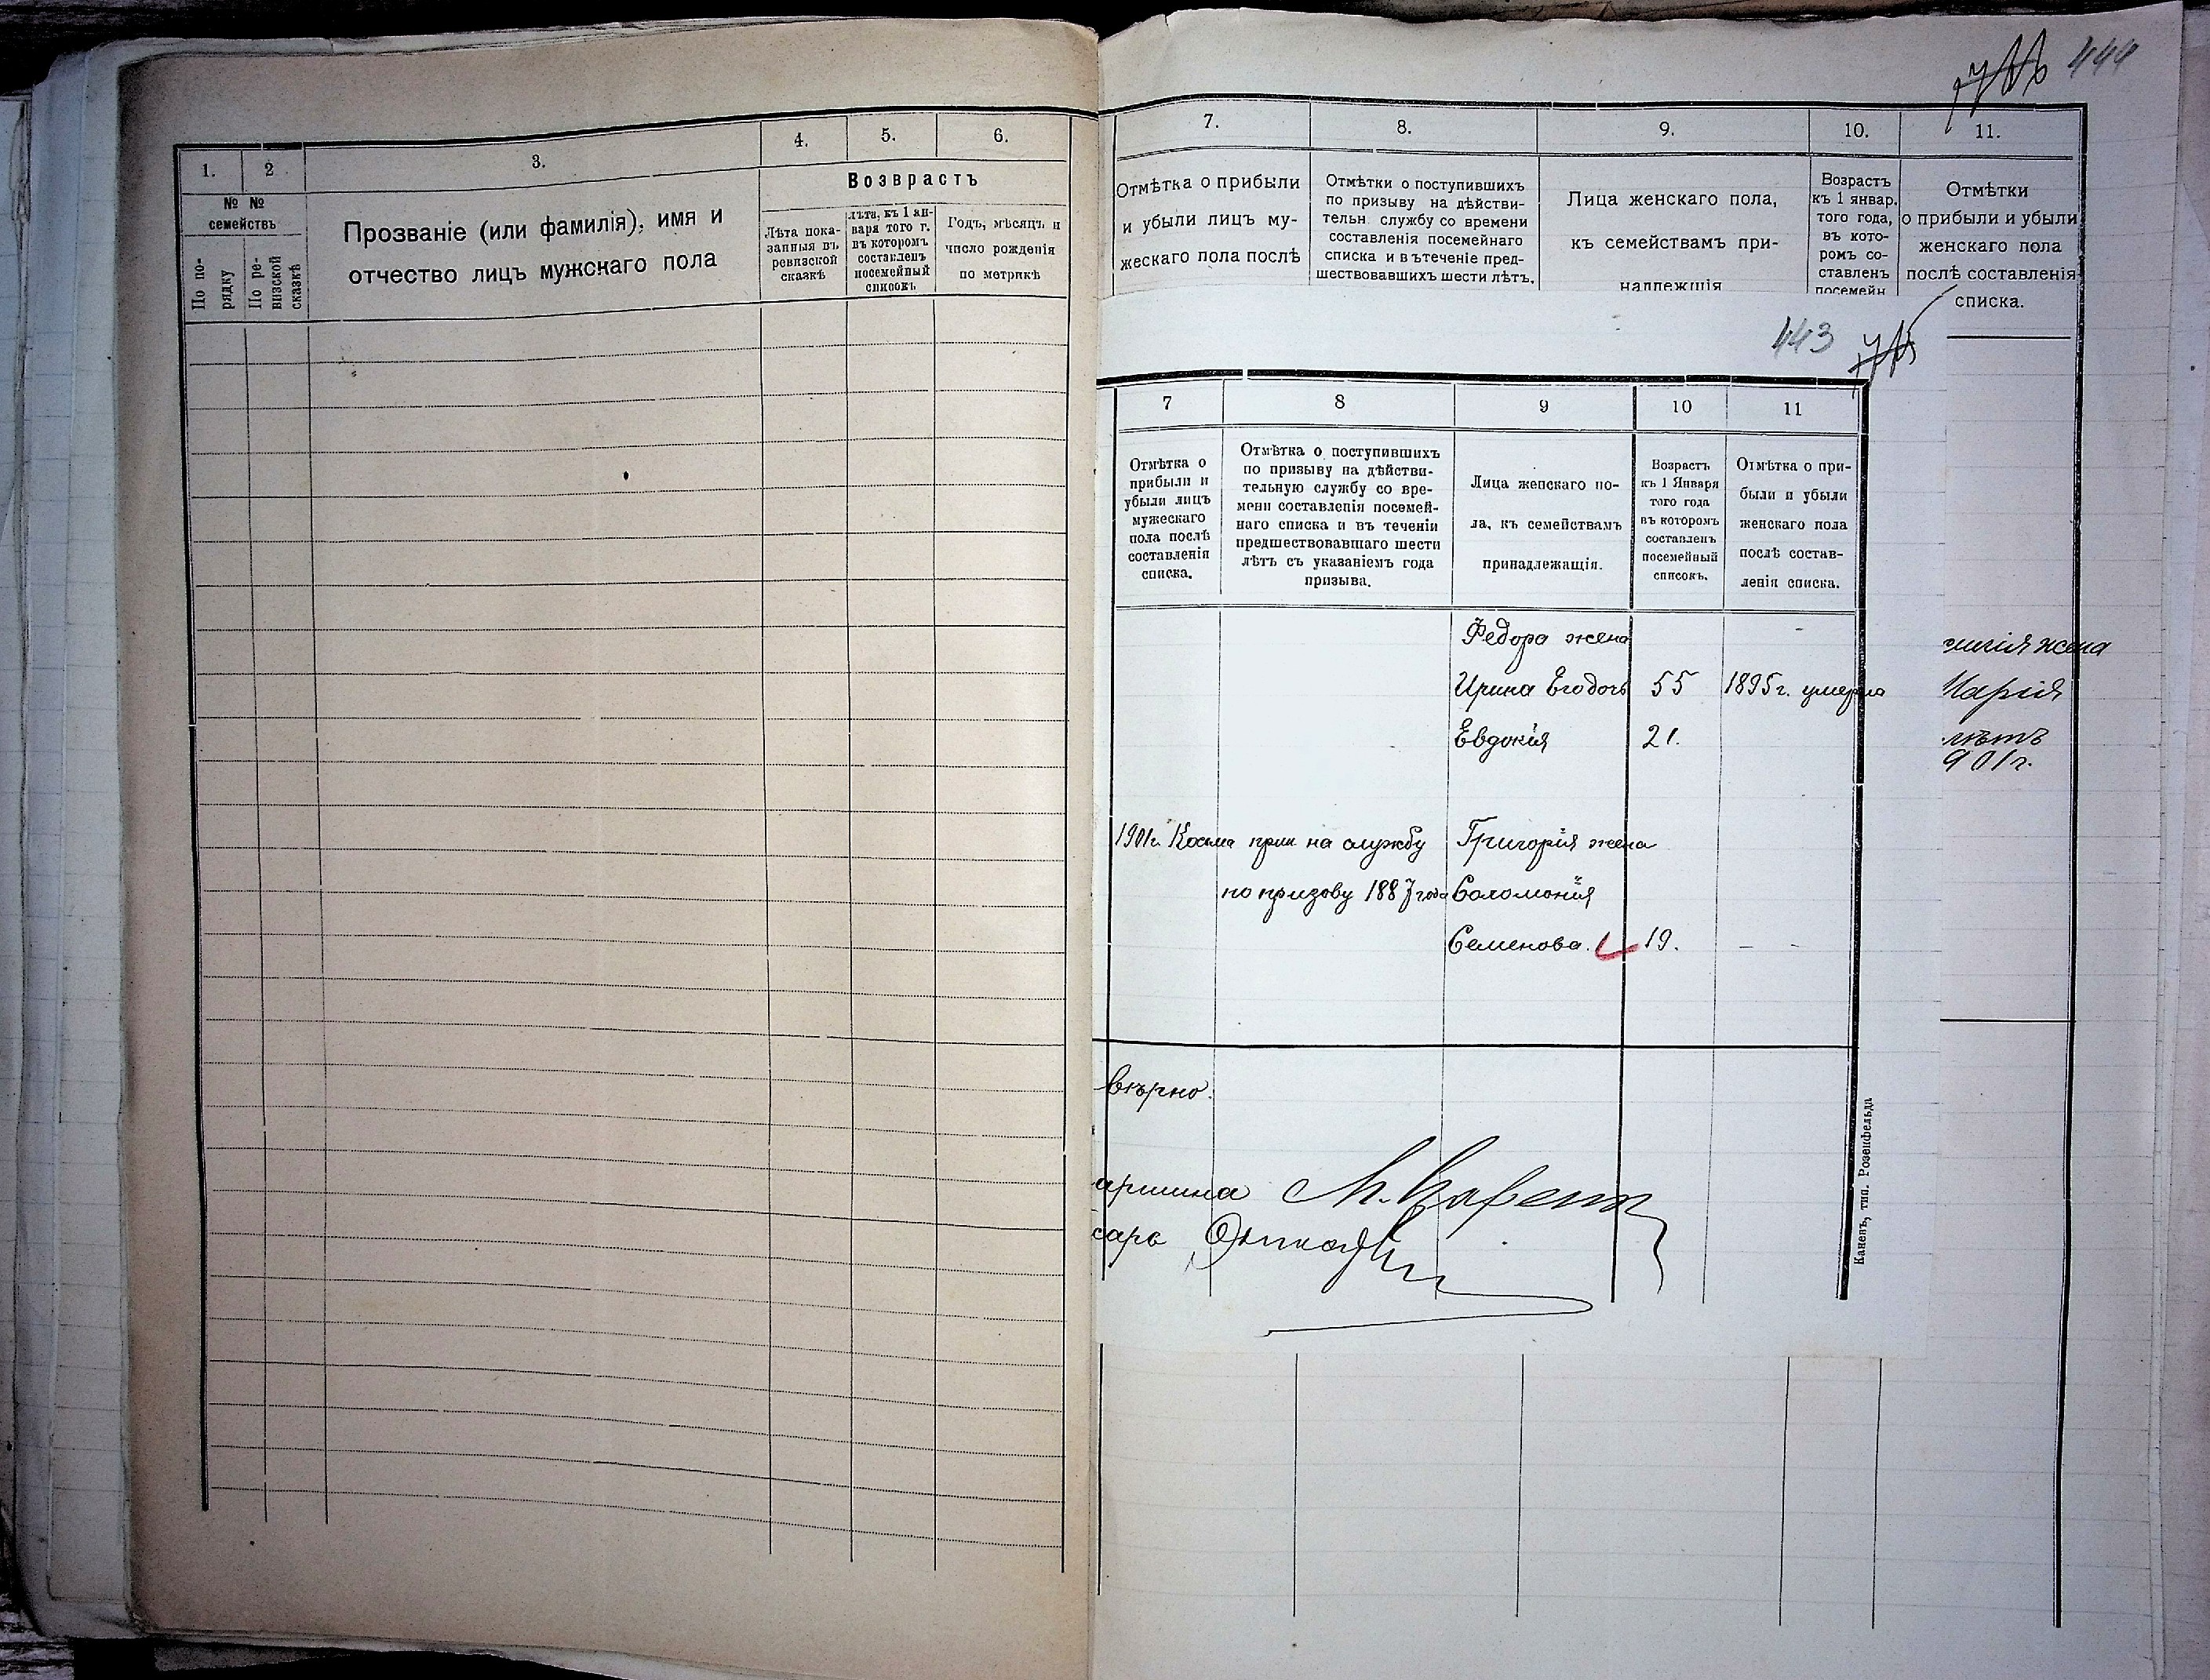 1.
2
3.
4.
5.
6.
№ №
семействъ
По по-
рядку
По ре-
визской
сказкѣ
Прозваніе (или фамилія), имя и
отчество лицъ мужскаго пола
Возврастъ
Лѣта пока-
занныя въ
ревизской
сказкѣ
лѣта, къ 1 ян-
варя того г.
въ которомъ
составленъ
посемейный
списокъ
Годъ, мѣсяцъ и
число рожденія
по метрикѣ
444
7.
8.
9.
10.
11.
Отмѣтка о прибыли
и убыли лицъ му-
жескаго пола послѣ
Отмѣтки о поступившихъ
по призыву на дѣйстви-
тельн. службу со времени
составленія посемейнаго
списка и въ теченіе пред-
шествовавшихъ шести лѣтъ.
Лица женскаго пола,
къ семействамъ при-
надлежщія
Возрастъ
къ 1 январ.
того года,
въ кото-
ромъ со-
ставленъ
посемейн
Отмѣтки
о прибыли и убыли
женскаго пола
послѣ составленія
списка.
443
7
8
9
10
11
Отмѣтка о
прибыли и
убыли лицъ
мужескаго
пола послѣ
составленія
списка.
Отмѣтка о поступившихъ
по призыву на дѣйстви-
тельную службу со вре-
мени составленія посемей-
наго списка и въ теченіи
предшествовавшаго шести
лѣтъ съ указаніемъ года
призыва.
Лица женскаго по-
ла, къ семействамъ
принадлежащія.
Возрастъ
къ 1 Января
того года
въ которомъ
составленъ
посемейный
списокъ.
Отмѣтка о при-
были и убыли
женскаго пола
послѣ состав-
ленія списка.
Федора жена
Ирина Его дочь 55 1895 г. умерла
Евдокія 21.
1901 г. Косма прин на службу Григорія жена
по призову 1887 года Соломонія
Семенова. 19. - -
жена
Марія
лѣтъ
901 г.
вѣрно.
аршина
саръ
Каневъ, тип. Розенфельда